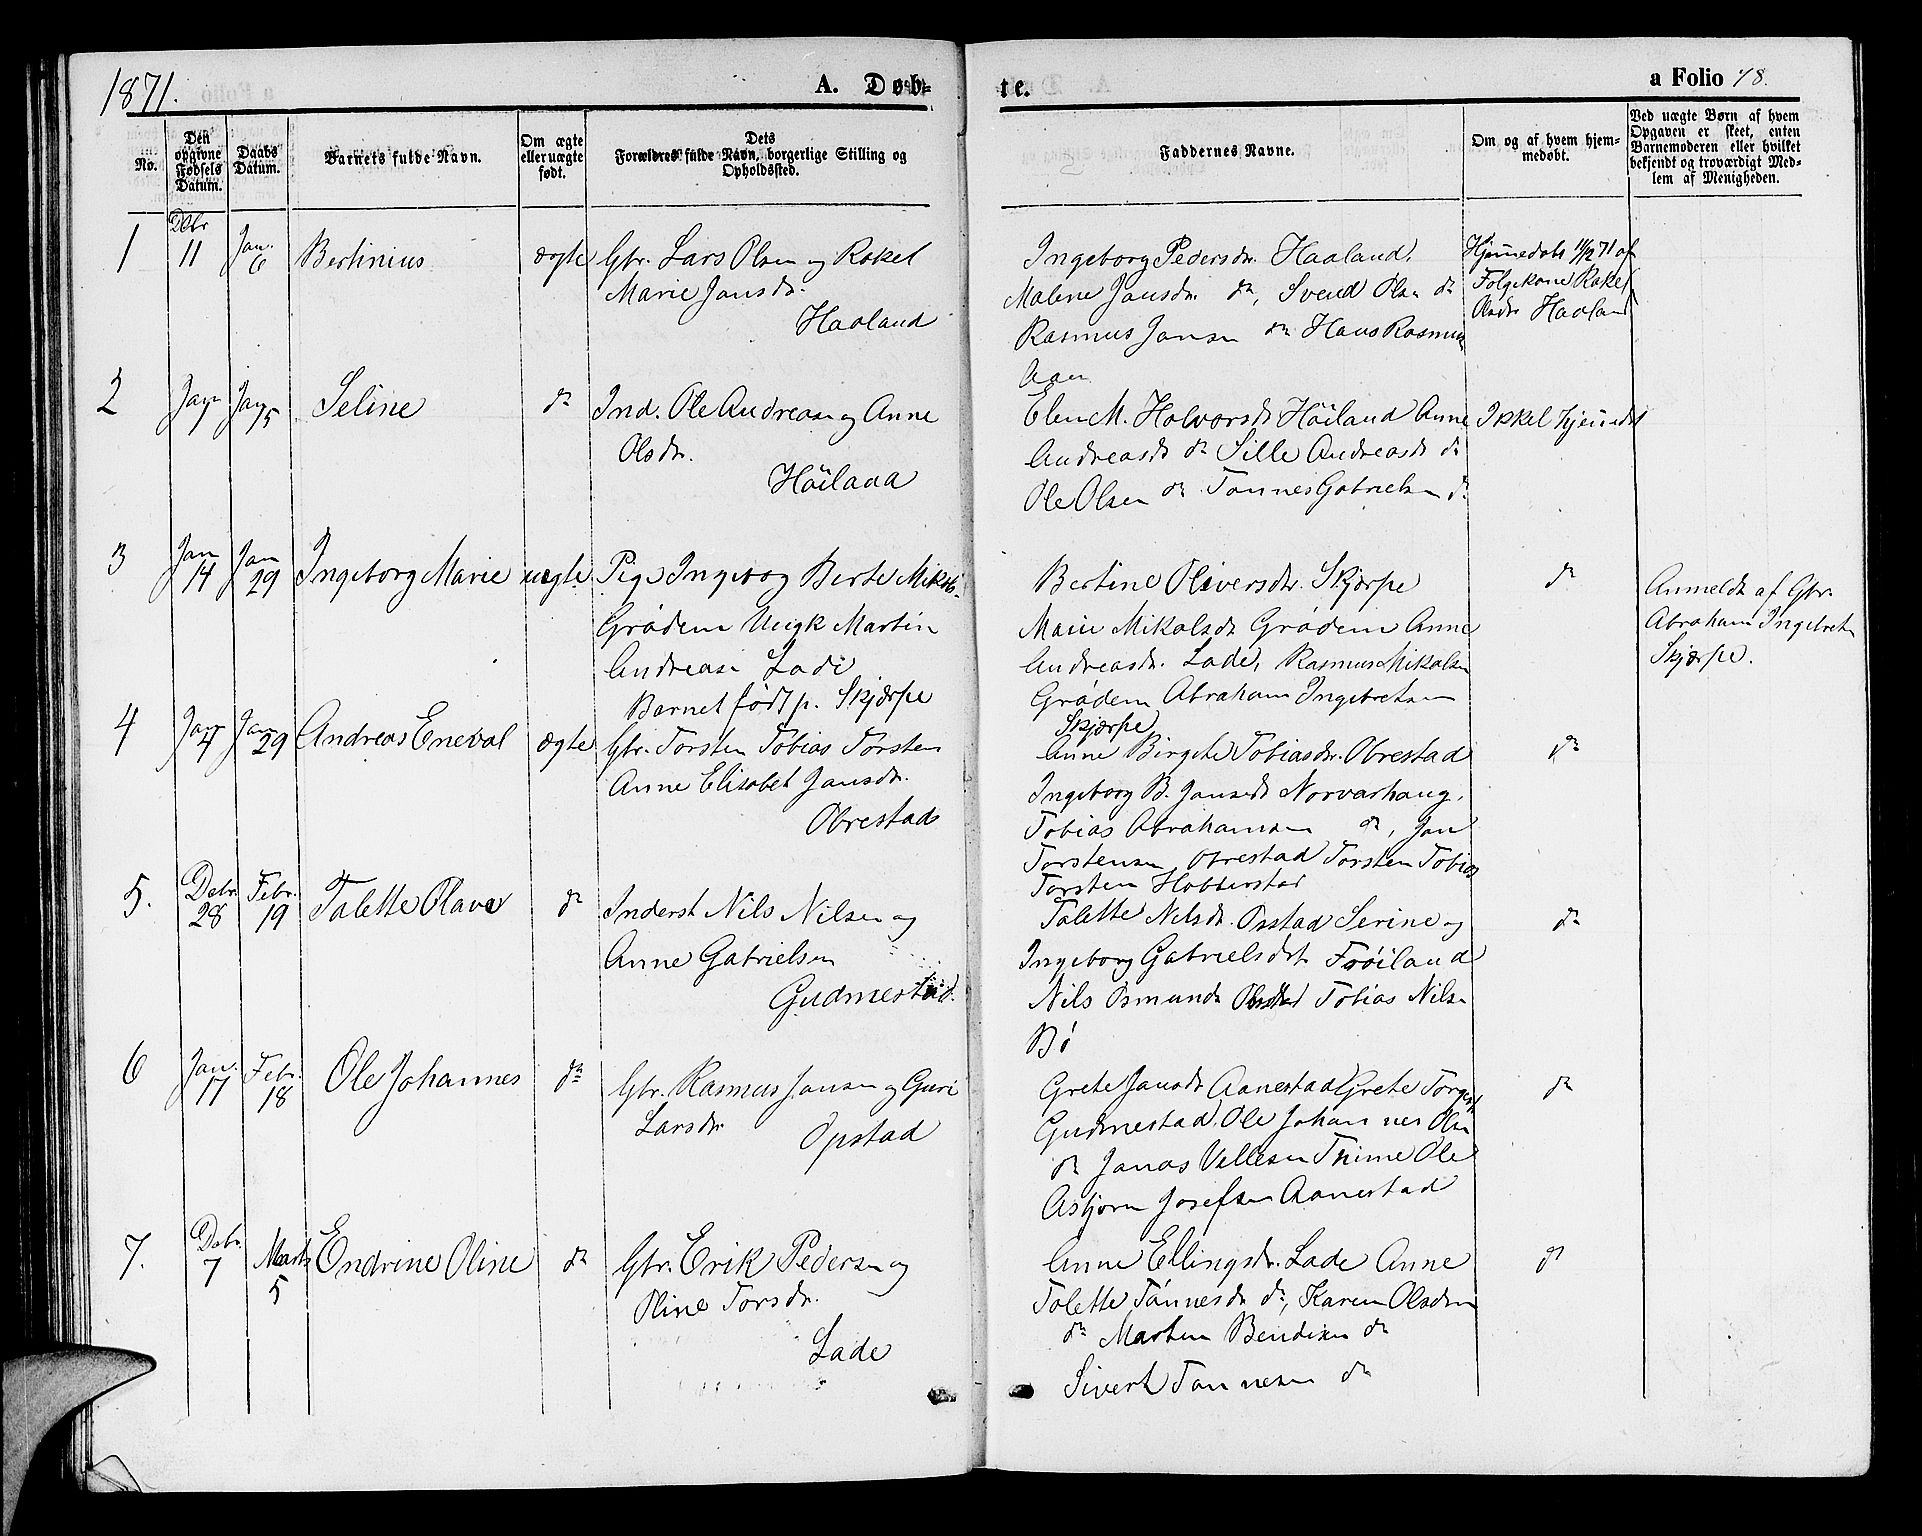 1871.
A. Døb-
te.
a Folio 78.
No.
Den opgivne Fødsels Datum.
Daabs Datum.
Barnets fulde Navn.
Om ægte eller uægte født.
Dets Forældres fulde Navn, borgerlige Stilling og Opholdssted.
Faddernes Navne.
Om og af hvem hjem-
medøbt.
Ved uægte Børn af hvem
Opgaven er skeet, enten
Barnemoderen eller hvilket
bekjendt og troværdigt Med-
lem af Menigheden.
1
Dcbr 11
Jan. 6
Bertinius
ægte
Gbr. Lars Olsen og Rakel
Marie Jansdr.
Haaland
Ingeborg Pedersdr. Haaland.
Malene Jansdr. do, Svend Olsen do
Rasmus Jansen do Hans Rasmus
Hjemmedøbt 11/12 71 af
Følgekone Rakel
Olsdr Haaland
2
Seline
do
Ind. Ole Andreasen og Anne
Olsdr.
Höiland
Elen M. Halvorsdr Höiland Anne
Andreasdr do Sille Andreasdr do
Ole Olsen do Tønnes Gabrielsen do
Ikkel hjemmedøbt
3
Jan 14
Jan 29
Ingeborg Marie
uægte
Pige Ingeborg Berte Mikals.
Grødem Ungk Martin
Andreasen Lade
Barnet født p. Skjærpe
Bertine Oliversdtr. Skjærpe
Marie Mikalsdr Grødem Anne
Andreasdr. Lade, Rasmus Mikalsen
Grødem Abraham Ingebretsen
Skjærpe
do
Anmeldt af Gbr.
Abraham Ingebretsen
Skjærpe.
4
Jan 4
Jan 29
Andreas Eneval
ægte
Gbr. Torsten Tobias Torstens
Anne Elisabet Jansdr.
Obrestad
Anne Birgite Tobiasdr. Obrestad
Ingeborg B. Jansdr Norvarhaug.
Tobias Abrahamsen do, Jan
Torstensen Obrestad Torsten Tobias
Torsten Hobberstad
do
5.
Debr. 28
Febr. 19
Talette Olava
do
Inderst Nils Nilsen og
Anne Gabrielsen
Gudmestad.
Talette Nilsdr. Osstad Serine og
Ingeborg Gabrielsdtr Frøiland
Nils Osmunds Tobias Nilsen
Bø
do
6
Jan. 17
Febr. 18
Ole Johannes
do
Gbr. Rasmus Jansen og Guri
Larsdr.
Opstad
Grete Jansdr Aanestad Grete Torgersdr
Gudmestad. Ole Johannes Olsen
do Janas Vallesen Thime Ole
Asbjørn Josefsen Aanestad
do
7.
Debr. 7
Marts 5
Endrine Oline
do
Gbr. Erik Pedersen og
Oline Torsdr.
Lade
Anne Ellingsdr. Lade Anne
Talette Tønnesdr do, Karen Olsdtr
do Marten Bendixen do
Sivert Tønnesen do
do